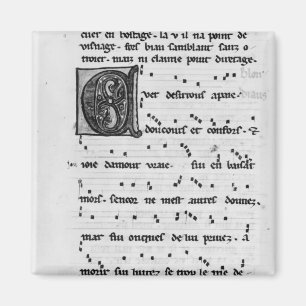 cuer en hostage. la v il na point de
visnage. fors bian samblant sanz o
troier. mar ni claime point dviretage.
blon
diaus
Cver desirrous apaie
doucours et confors. &
ioie damour vraie. sui en baisant
mors. sencor ne mest autres donnez.
mar fui onques de lui privez. a
morir sui livrez se trop le me de